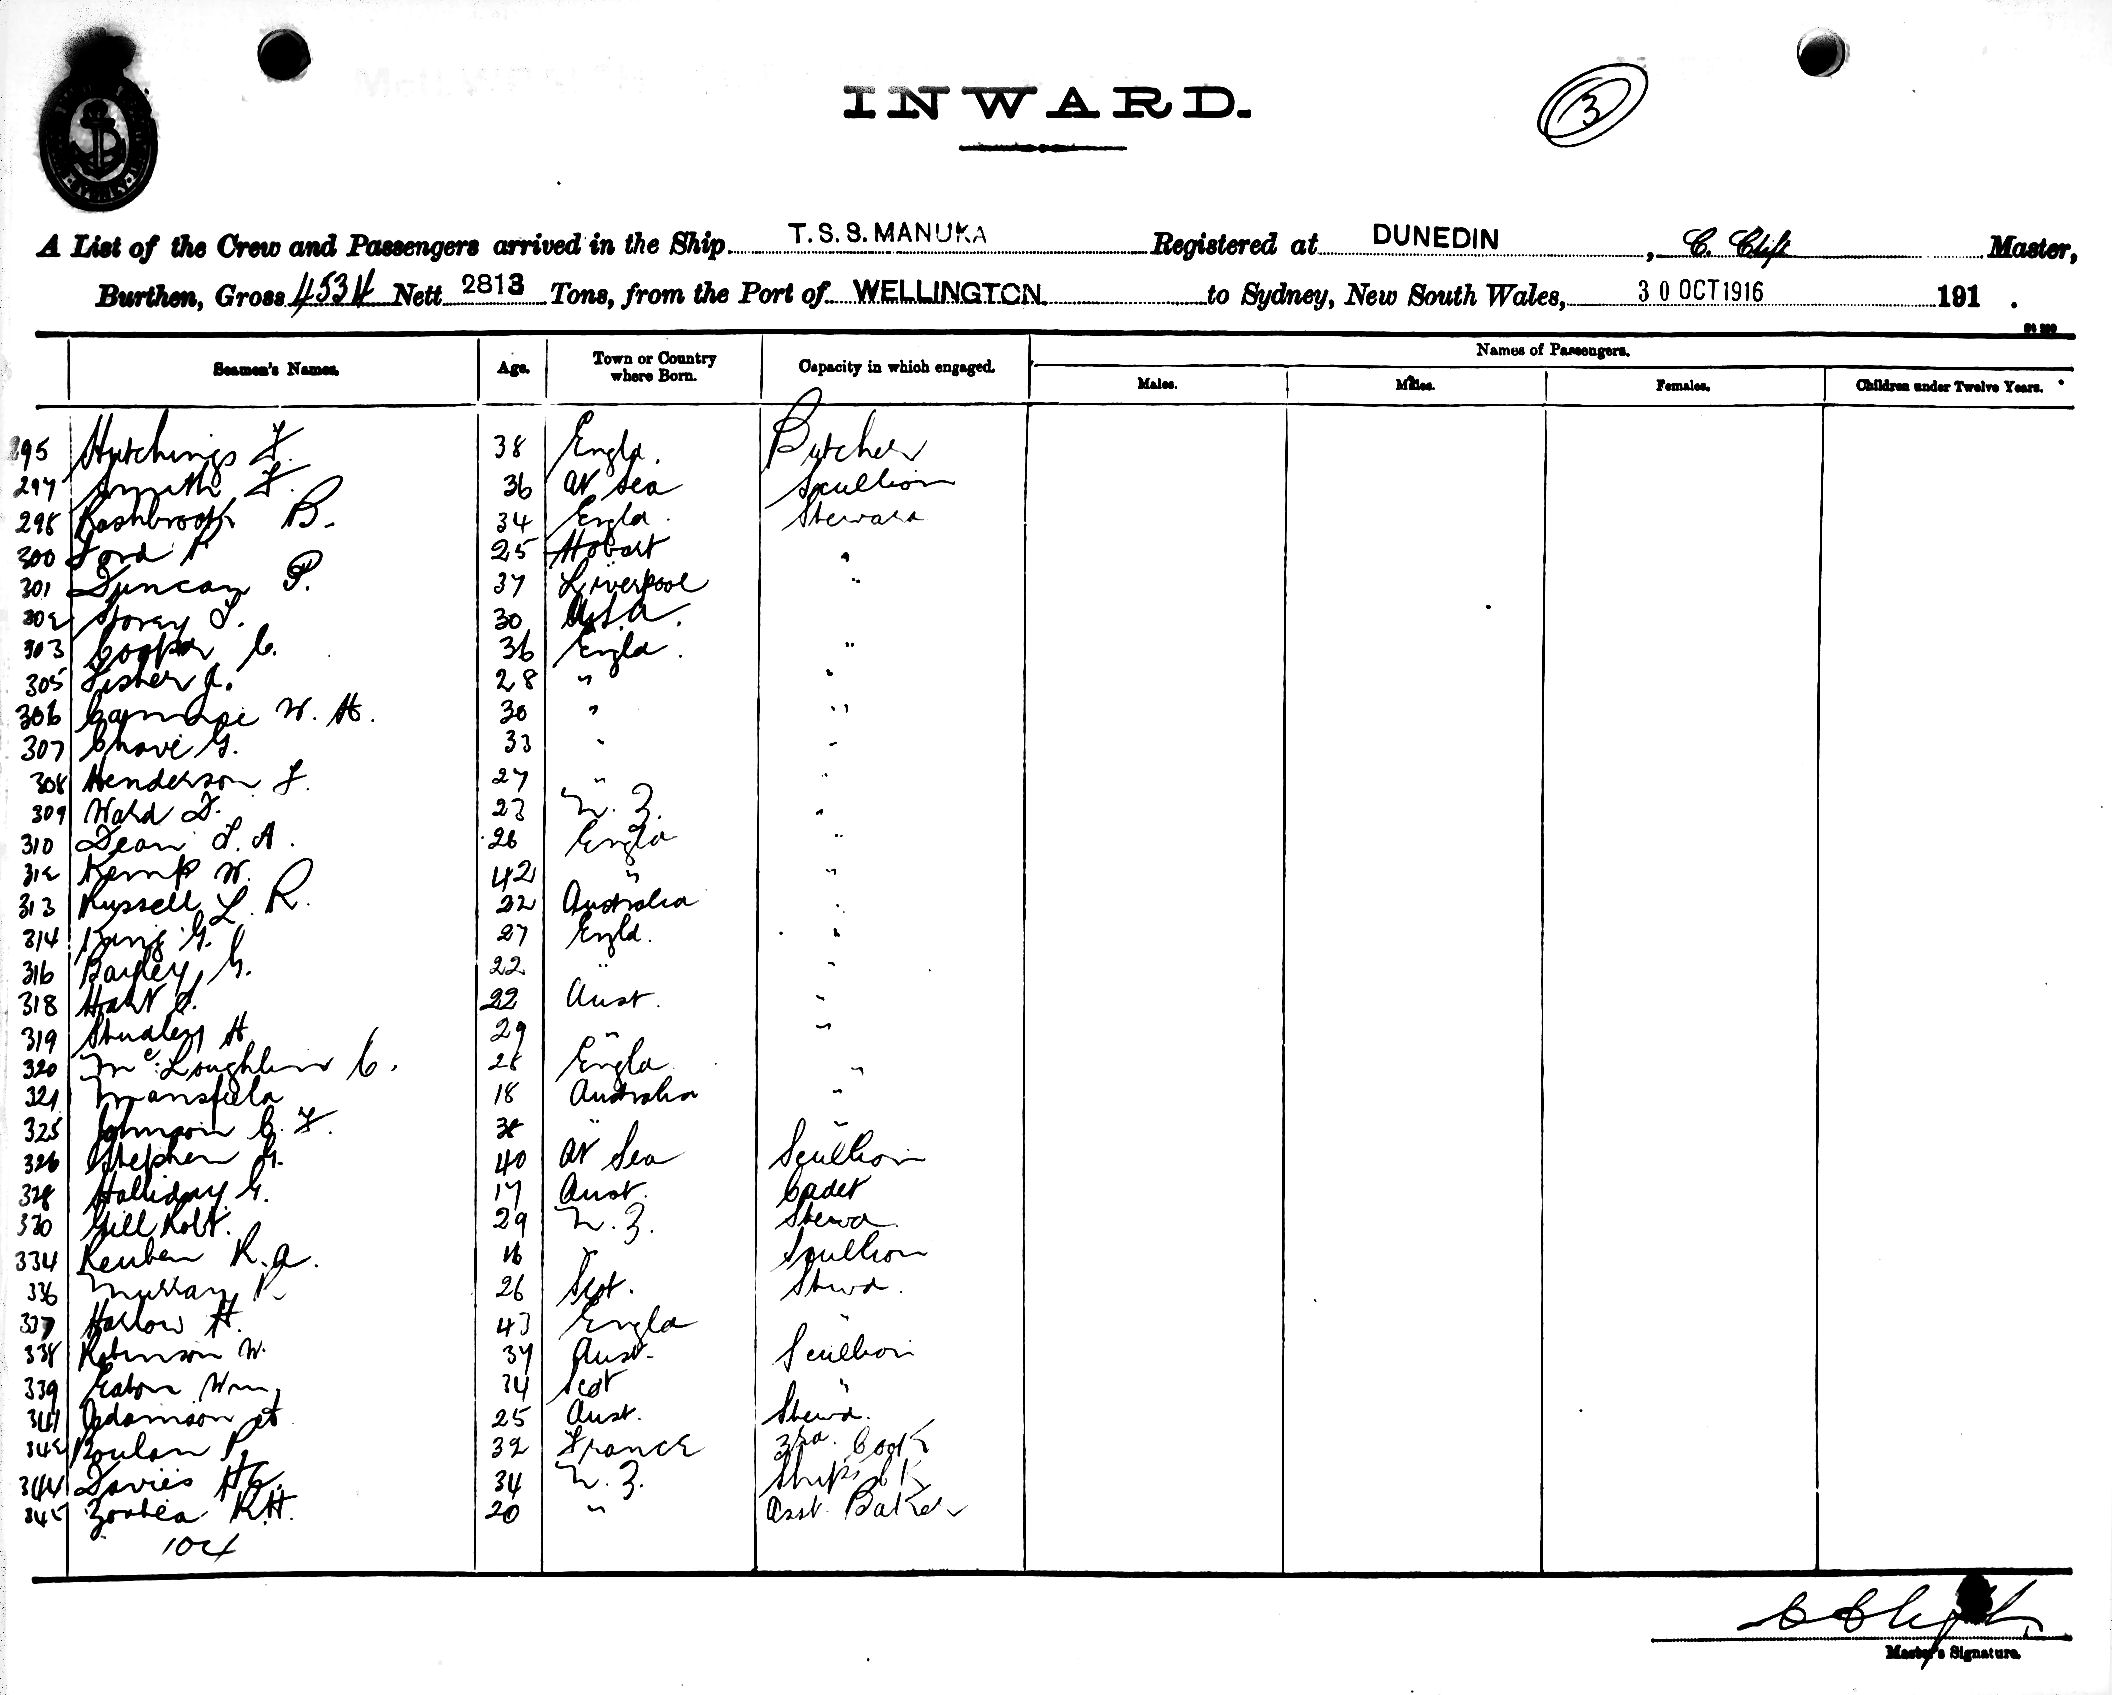 INWARD.
3
A List of the Crew and Passengers arrived in the Ship T.S.S. MANUKA Registered at DUNEDIN, C. Clift Master,
Burthen, Gross 4534 Nett 2813 Tons, from the Port of WELLINGTON to Sydney, New South Wales, 30 OCT 1916 191 .
Seamen's Names. Age. Town or Country where Born. Capacity in which engaged. Names of Passengers.
Males. Males. Females. Children under Twelve Years.
295 Hutchings F. 38 Engld. Butcher
297 Smith F. 36 at Sea Scullion
298 Rashbrook B. 34 Engld. Steward
300 Ford P 25 Hobart "
301 Duncan P. 37 Liverpool "
302 Storey 30
303 Cooper C. 36 Engld. "
305 Fisher J. 28 " "
306 W. H. 30 " "
307 Chave G. 33 " "
308 Henderson F. 27 " "
309 Ward 23 N. Z. "
310 Dean 26 Engld "
312 Kemp W. 42 " "
313 Russell L. R. 22 Australia "
314 King G. 27 Engld. "
316 Bayley G. 22 " "
318 Hart 22 Aust. "
319 Studley H 29 " "
320 McLoughlin C. 28 Engld "
321 Mansfield 18 Australia "
325 Johnson C. F. 38 " "
326 Stephen G. 40 at Sea Scullion
328 Halliday G. 17 Aust. Cadet
330 Gill Robt. 29 N. Z. Stewd
334 Reuben R. A. 16 " Scullion
336 Murray P. 26 Scot. Stewd.
337 Harlow H. 43 Engld "
338 Robinson W. 37 Aust. Scullion
339 Eaton Wm 34 Scot "
341 Adamson A 25 Aust. Stewd.
342 Boulan P. 32 France 3rd. Cook
344 Davies 34 N. Z. Ships Ck
345 R.H. 20 " Asst. Baker
104
C Clift
Master's Signature.